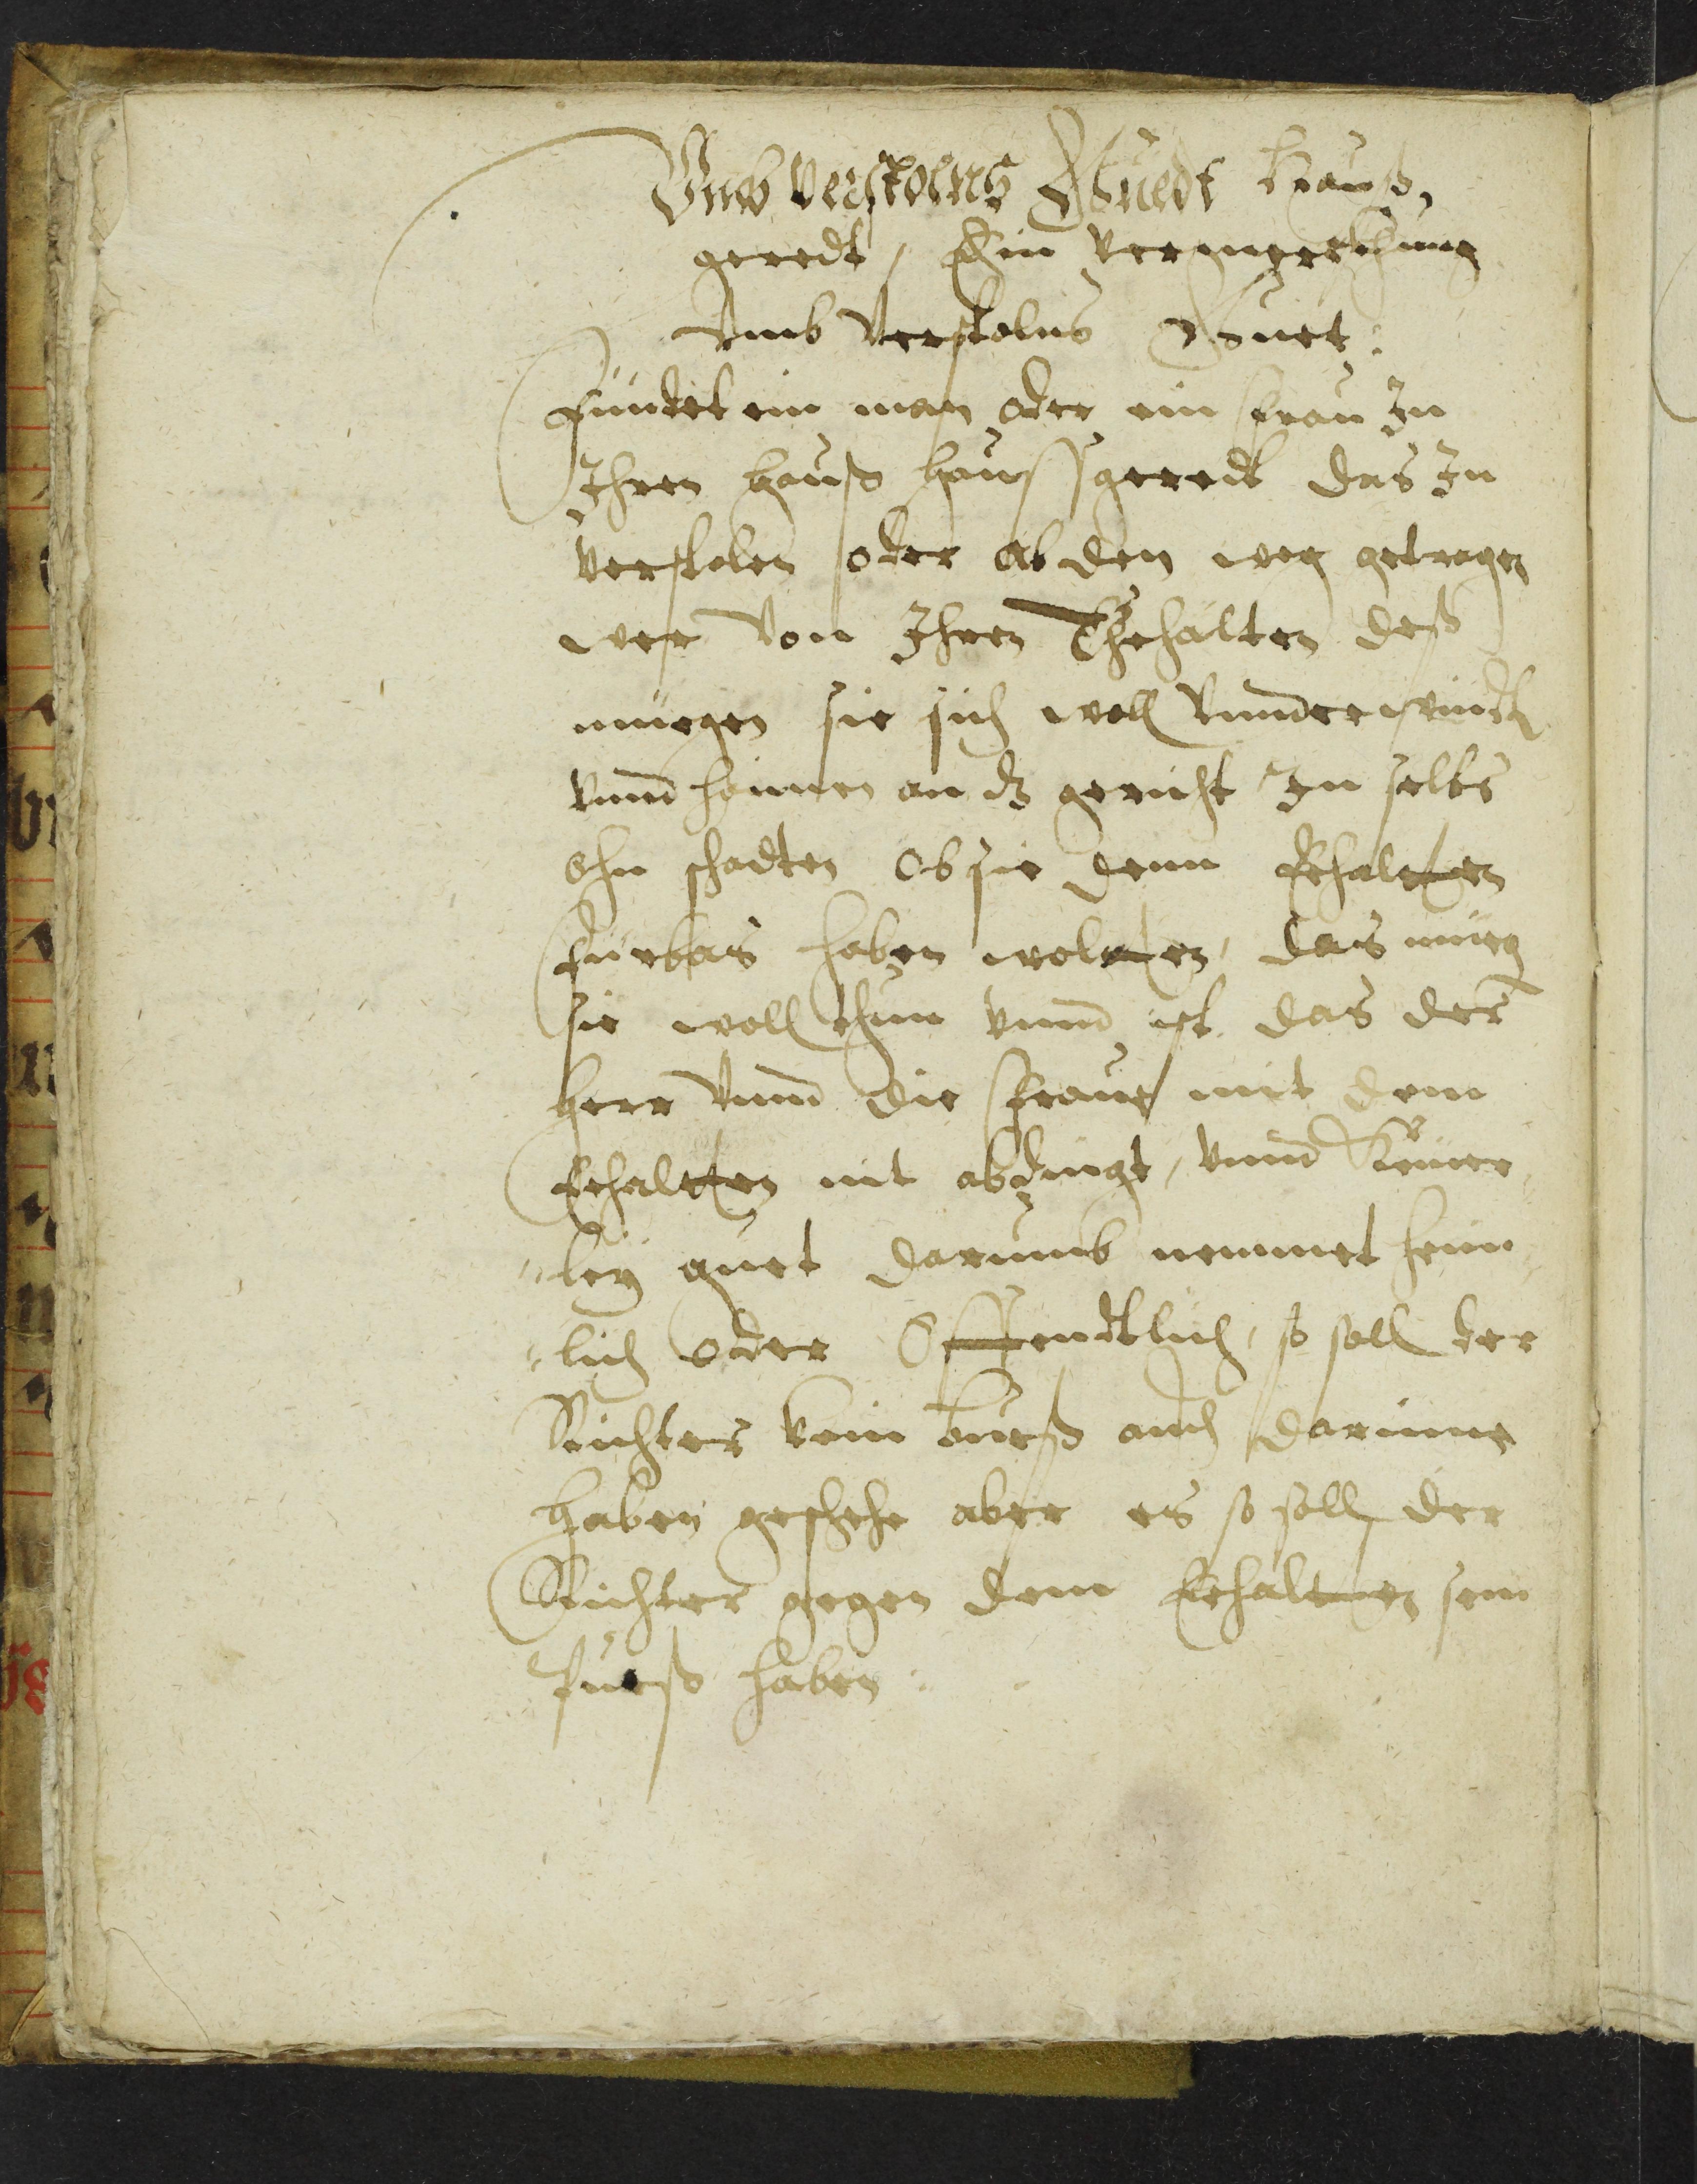 Vmb verstolns Guedt hauß,
geredt, Ein Verengerstehung
Vmb Verstolns Guet:
Fündet ein man oder ein frau Jn
Jhren hauß haußgeredt das Jn
verstolen oder ab den weg getragen
wer Von Jhren Ehehalten deß
müegen sie sich woll Vnnderwindt
vnnd heimen an dz gericht Jn selbs
Ohn schadten Ob sie denn Eehalten
fürbas haben wolten, das müeg
sie woll thun vnnd ist das der
herr vnnd die Fraue mit dem
Eehalten nit abdingt, vnnd Keiner
"leÿ guet darumb nemmet heim
"lich oder Offendtlich, so soll der
Richter kein bueß auch darinne
haben geschehe aber es so soll der
Richter gegen dem Eehalten sein
Pueß haben: